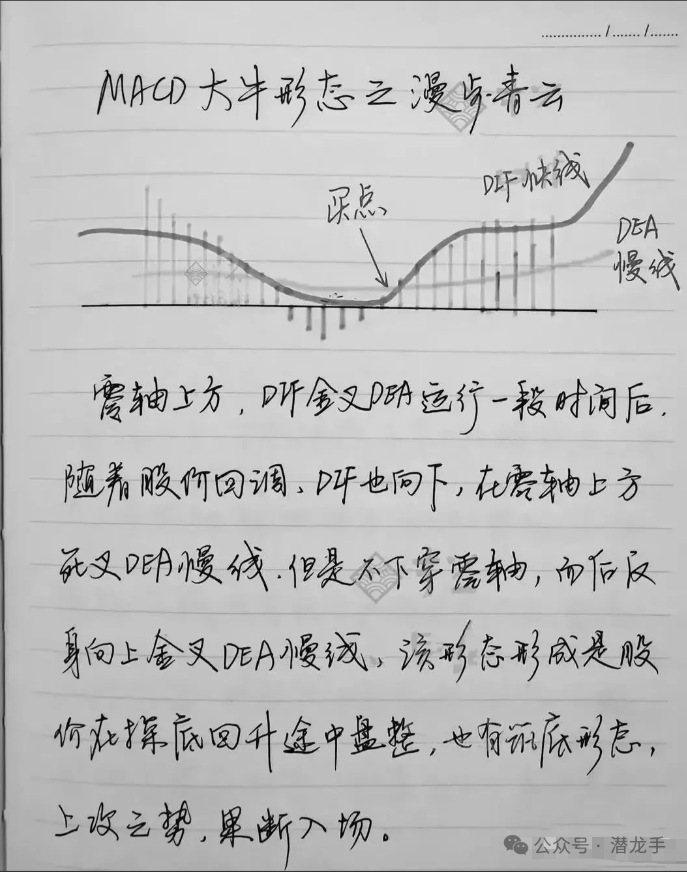 MACD大牛形态之漫步青云
DIF快线
买点
DEA
慢线
零轴上方，DIF金叉DEA运行一段时间后.
随着股价回调、DIF也向下，在零轴上方
死叉DEA慢线.但是不下穿零轴，而后反
身向上金叉DEA慢线，该形态形成是股
价在探底回升途中盘整，也有筑底形态，
上攻之势，果断入场。
公众号·潜龙手